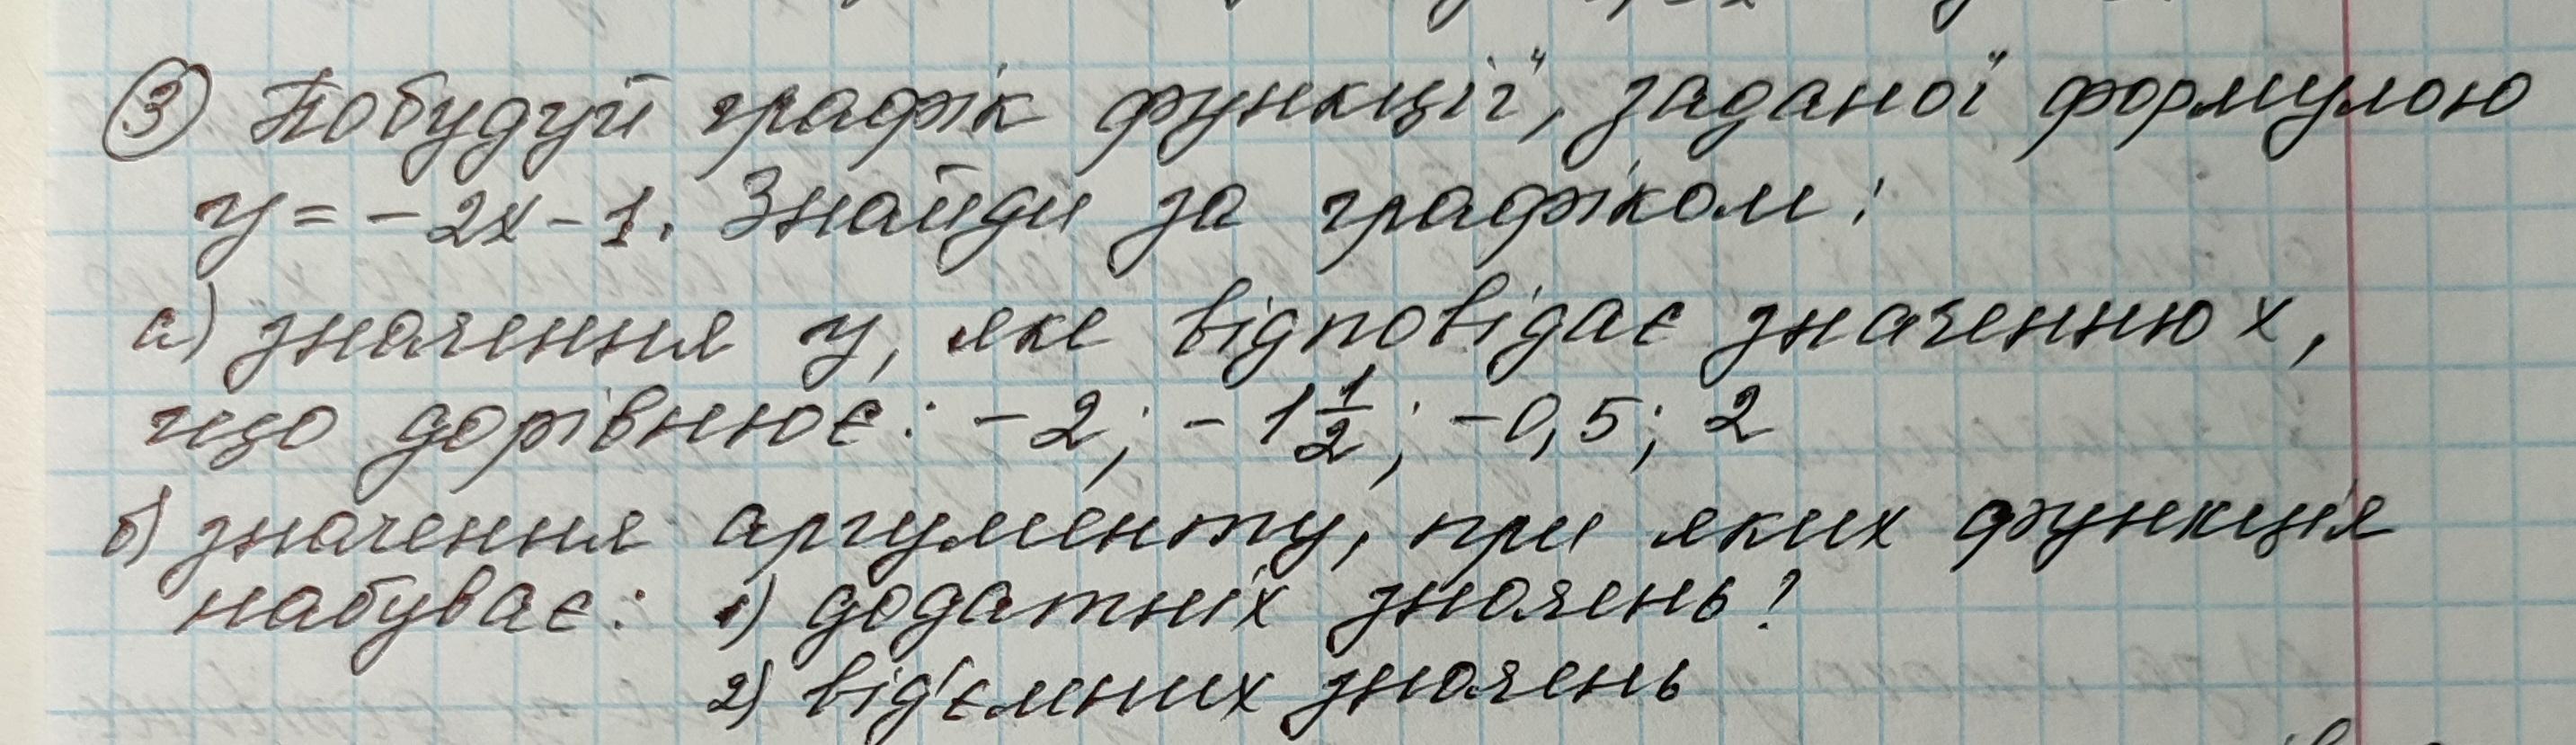 ③ Побудуй графік функції, заданої формулою
y = -2x - 1. Знайди за графіком:
а) значення y, яке відповідає значенню x,
що дорівнює: -2; -1 1/2; -0,5; 2
б) значення аргументу, при яких функція
набуває: 1) додатніх значень?
2) від'ємних значень